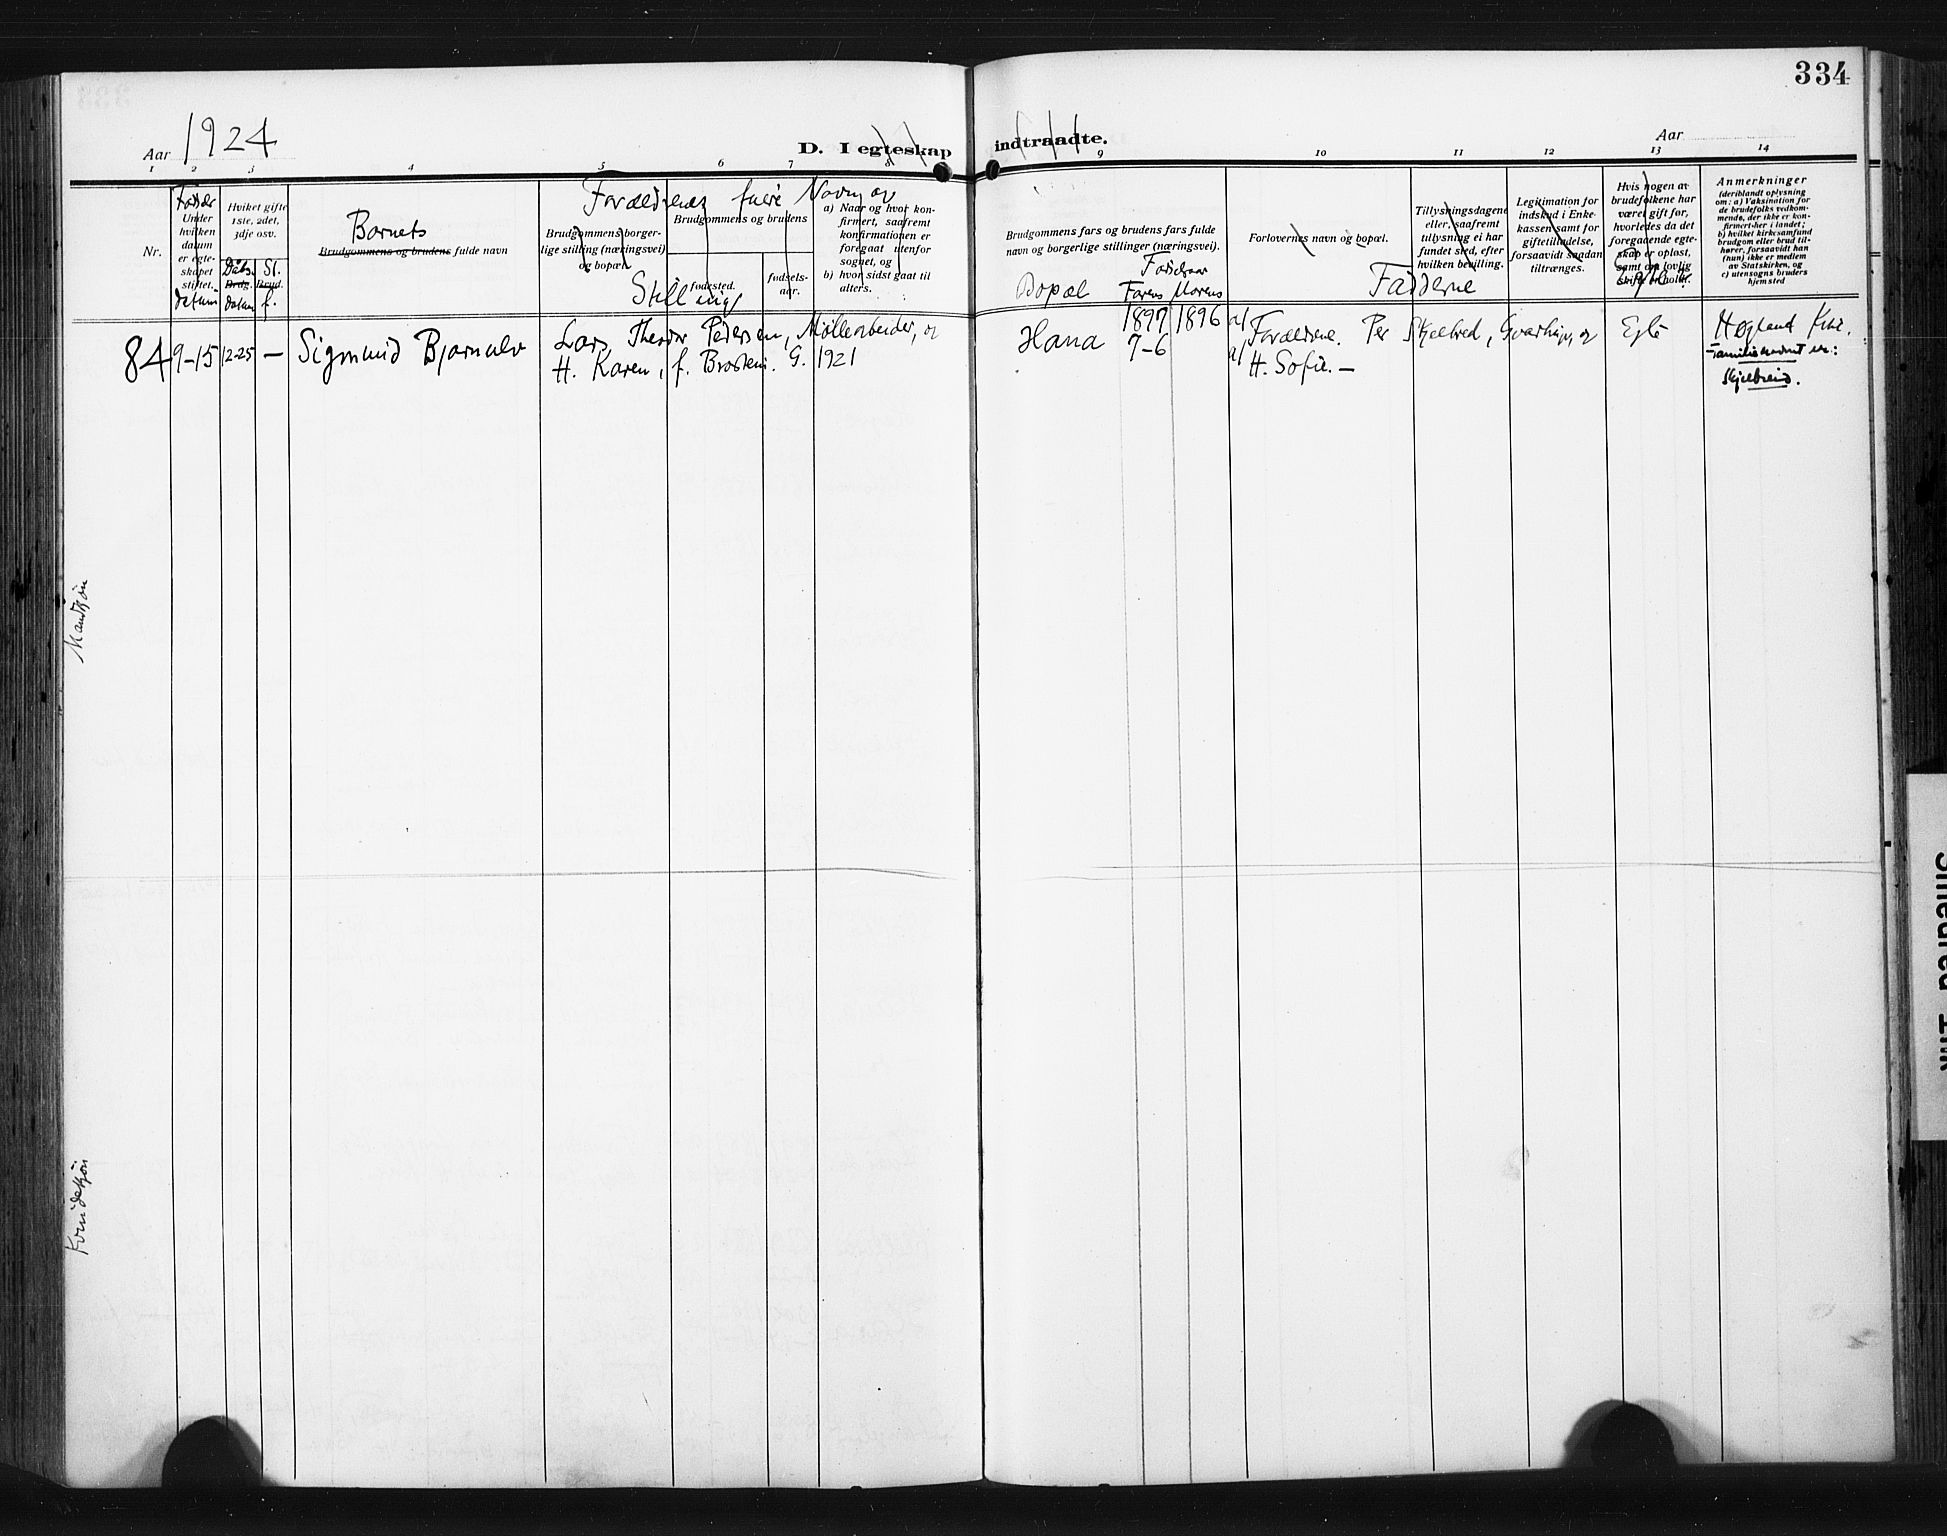 334
Aar 1924
D. I egteskap indtraadte.
Aar
1 2 3 4 5 6 7 8 9 10 11 12 13 14
Nr.
Under hvilken datum er egteskapet stiftet.
datum
Hviket gifte 1ste, 2det, 3dje osv.
Brdg.
Brud.
Daabs datum
St. f.
Barnets
Brudgommens og brudens fulde navn
Forældrenes fulde Navn og
Stilling
Brudgommens borgerlige stilling (næringsvei) og bopæl.
Brudgommens og brudens
fødested.
fødsels-aar.
a) Naar og hvor konfirmert, saafremt konfirmationen er foregaat utenfor sognet, og
b) hvor sidst gaat til alters.
Brudgommens fars og brudens fars fulde navn og borgerlige stillinger (næringsvei).
Bopæl
Fødselsaar
Farens Morens
Forlovernes navn og bopæl.
Fadderne
Tillysningsdagene eller, saafremt tillysning ei har fundet sted, efter hvilken bevilling.
Legitimation for indskud i Enkekassen samt for giftetilladelse, forsaavidt saadan tiltrænges.
Hvis nogen av brudefolkene har været gift før, hvorledes da det foregaaende egteskap er opløst, samt om lovlig skifte er holdt.
Anmerkninger
(deriblandt oplysning om: a) Vaksination for de brudefolks vedkommende, der ikke er konfirmert her i landet; b) hvilket kirkesamfund brudgom eller brud tilhører, forsaavidt han (hun) ikke er medlem av Statskirken, og c) utensogns bruders hjemsted
84 9-15 12-25 — Sigmund Bjarnulv
Lars Theodor Pedersen, Møllearbeider, og
H. Karen, f. Brosten. G. 1921
Hana
1897 1896
7-6
a/ Forældrene. Per Skjelbred, og
a/ H. Sofie. —
Egte
Høgland Kne.
Familienavnet er:
Skjelbreid.
Mandkjøn
Kvindekjøn